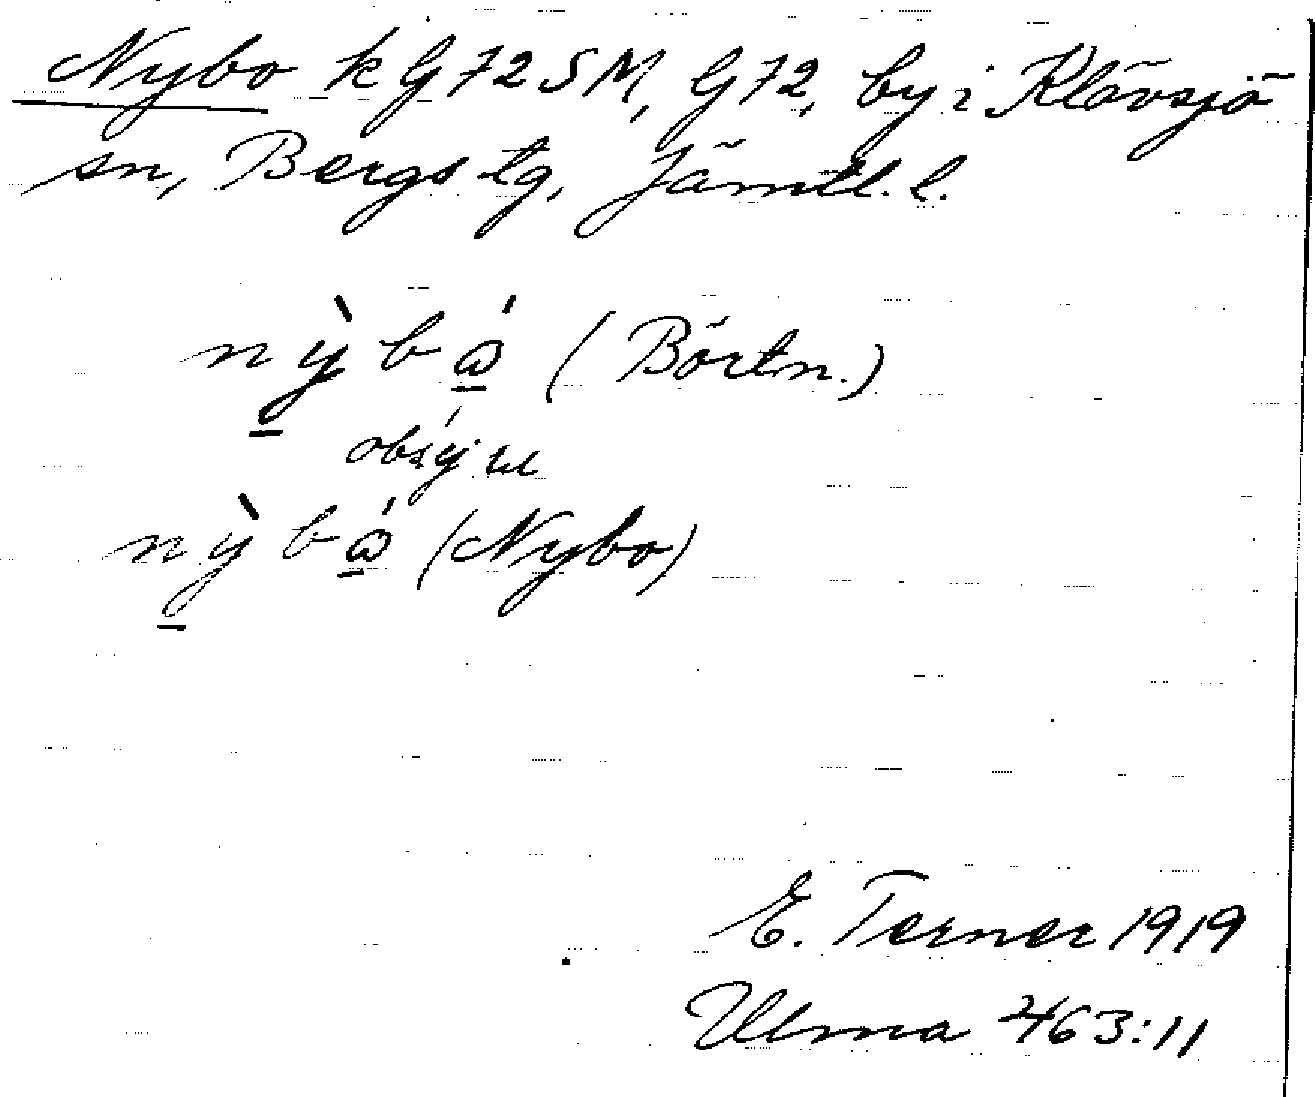 Nybo k G72SM, G72, by i Klövsjö
sn, Bergs tg, Jämtl. l.
nỳbó (Börtn.)
nỳbó (Nybo)
E. Terner 1919
Ulma 463:11